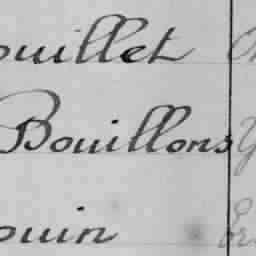 ouillet
Bouillons
ouin